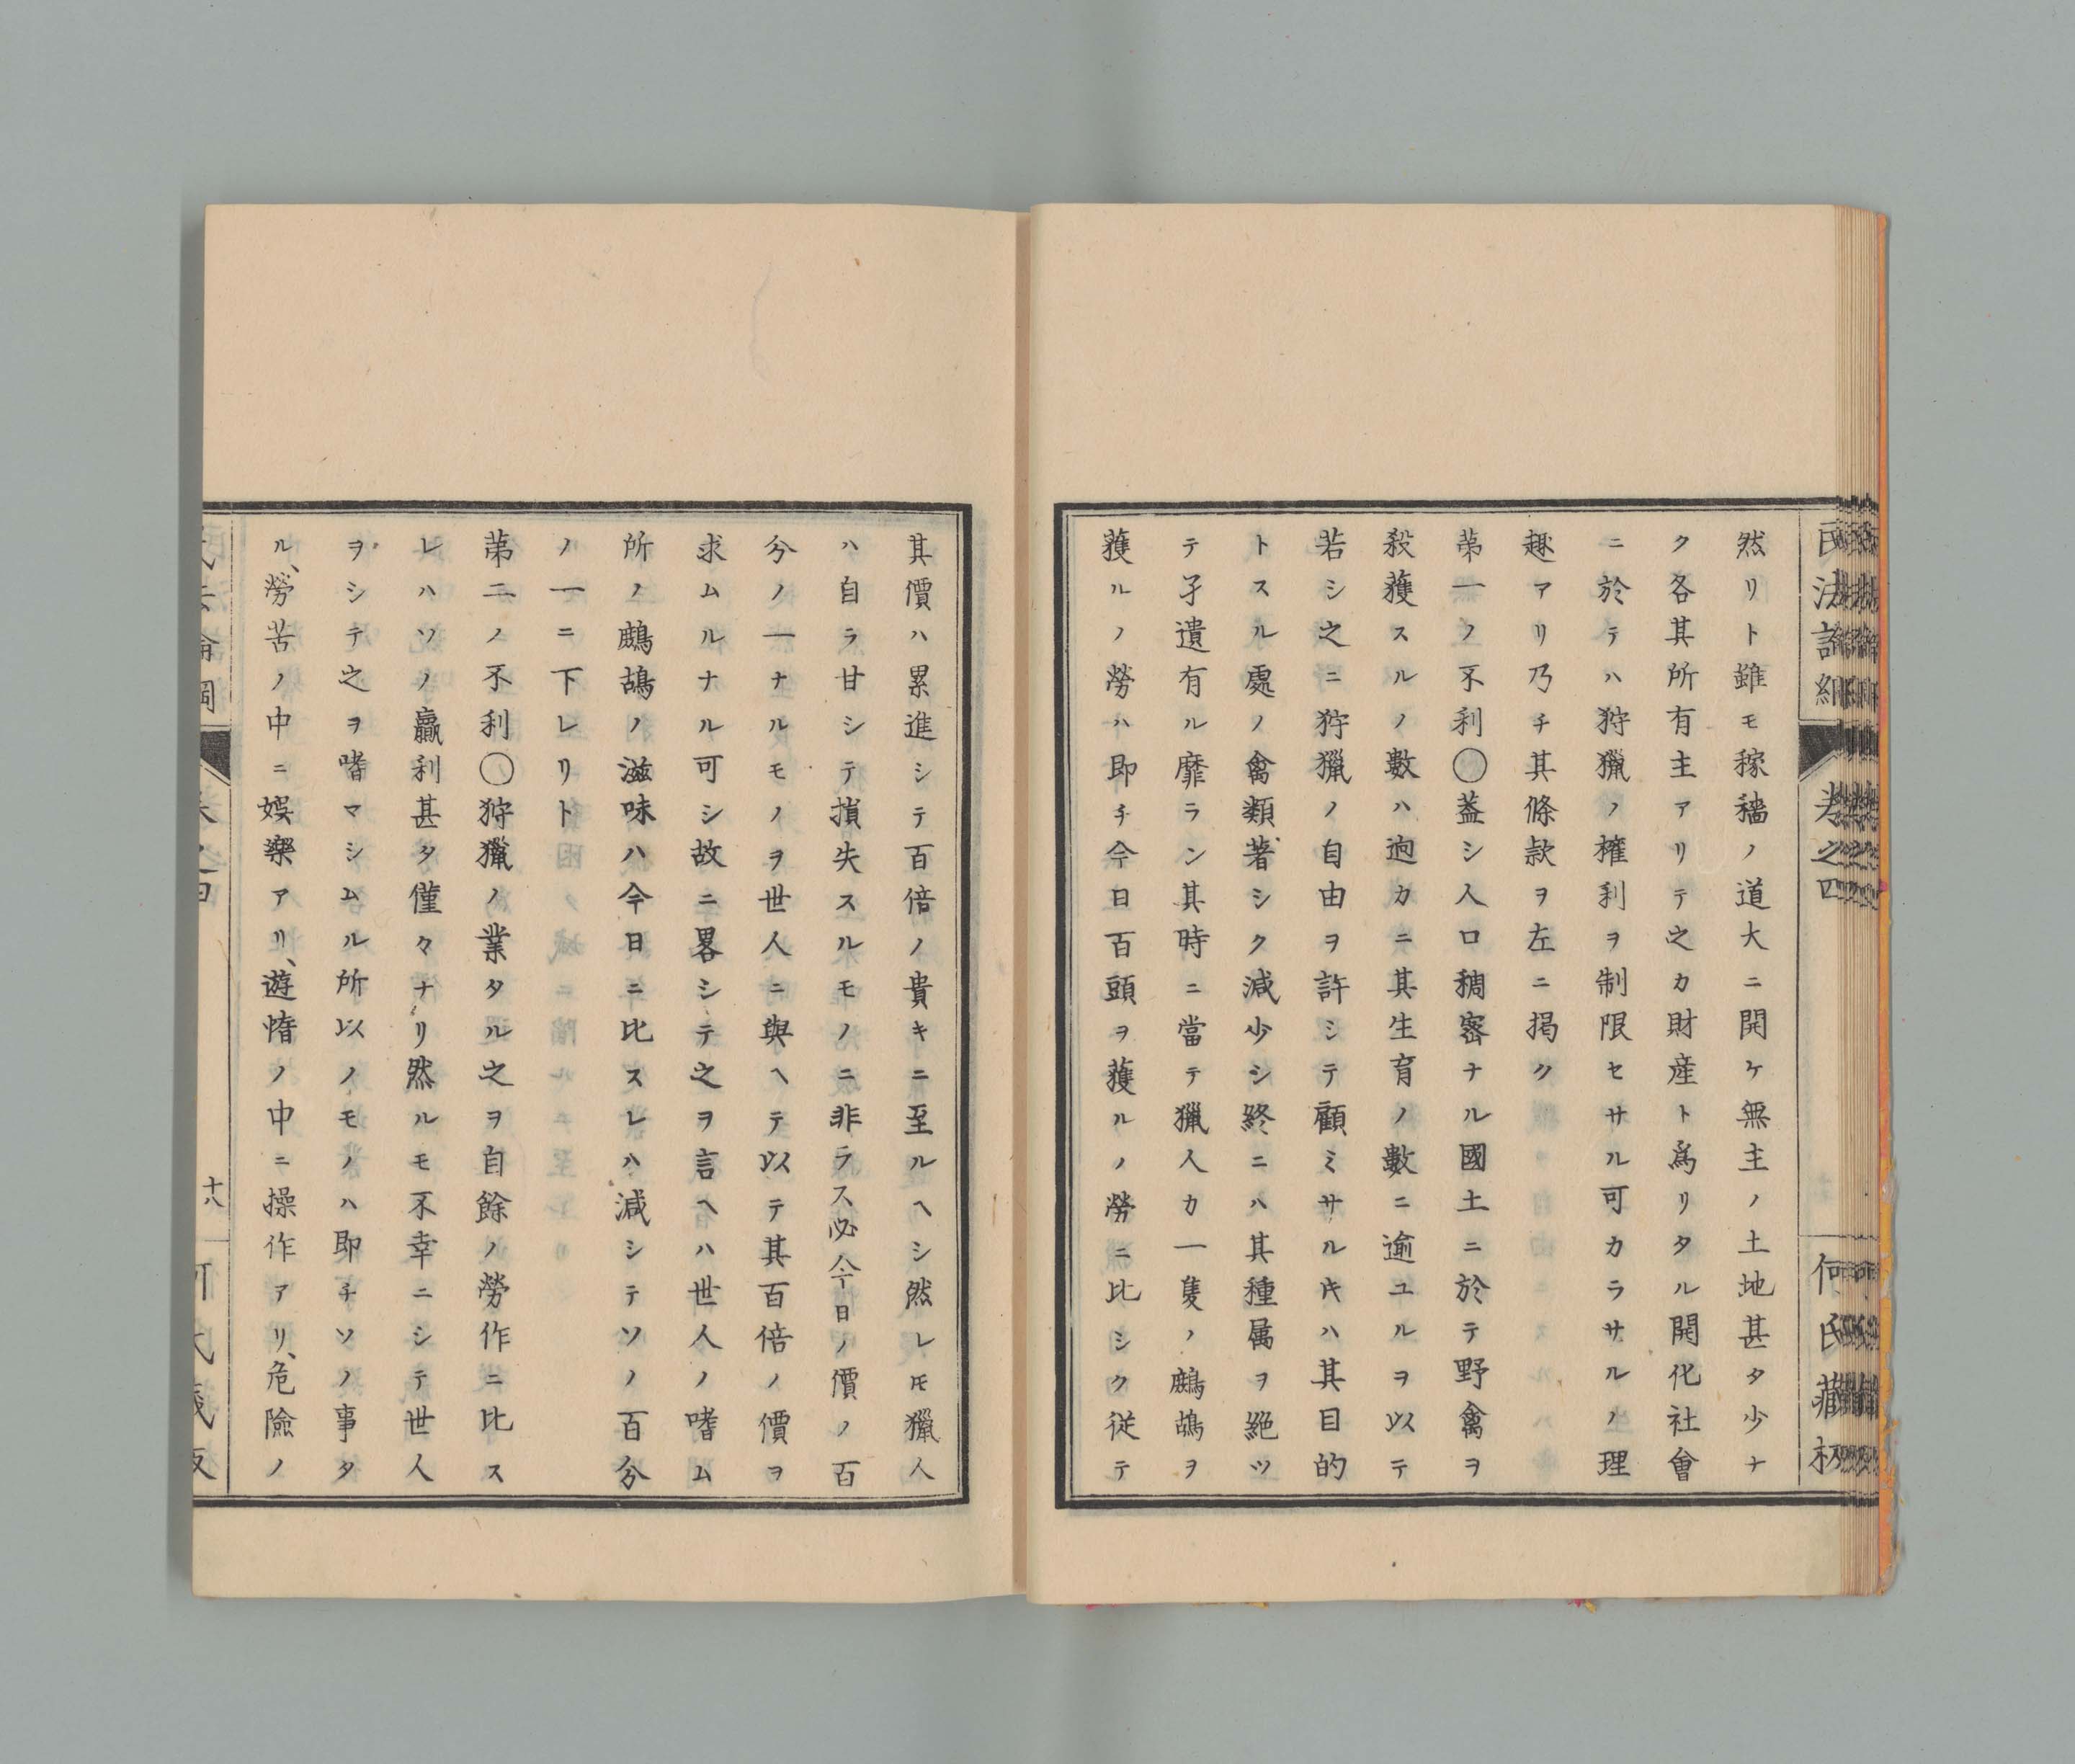 民法論綱　卷之四　何氏藏板
然リト雖モ稼穡ノ道大ニ開ケ無主ノ土地甚タ少ナ
ク各其所有主アリテ之カ財産ト爲リタル開化社會
ニ於テハ狩獵ノ權利ヲ制限セサル可カラサルノ理
趣アリ乃チ其條款ヲ左ニ掲ク
第一ノ不利〇葢シ人口稠密ナル國土ニ於テ野禽ヲ
殺獲スルノ數ハ逈カニ其生育ノ數ニ逾ユルヲ以テ
若シ之ニ狩獵ノ自由ヲ許シテ顧ミサルキハ其目的
トスル處ノ禽類著シク減少シ終ニハ其種属ヲ絶ツ
テ孑遺有ル靡ラン其時ニ當テ獵人カ一隻ノ鷓鴣ヲ
獲ルノ勞ハ即チ今日百頭ヲ獲ルノ勞ニ比シク從テ
其價ハ累進シテ百倍ノ貴キニ至ルヘシ然レ𪜈獵人
ハ自ラ甘シテ損失スルモノニ非ラス必今日ノ價ノ百
分ノ一ナルモノヲ世人ニ與ヘテ以テ其百倍ノ價ヲ
求ムルナル可シ故ニ畧シテ之ヲ言ヘハ世人ノ嗜ム
所ノ鷓鴣ノ滋味ハ今日ニ比スレハ減シテソノ百分
ノ一ニ下レリト
第二ノ不利〇狩獵ノ業タル之ヲ自餘ノ勞作ニ比ス
レハソノ贏利甚タ僅々ナリ然ルモ不幸ニシテ世人
ヲシテ之ヲ嗜マシムル所以ノモノハ即チソノ事タ
ル、勞苦ノ中ニ娯樂アリ、遊惰ノ中ニ操作アリ、危險ノ
十八